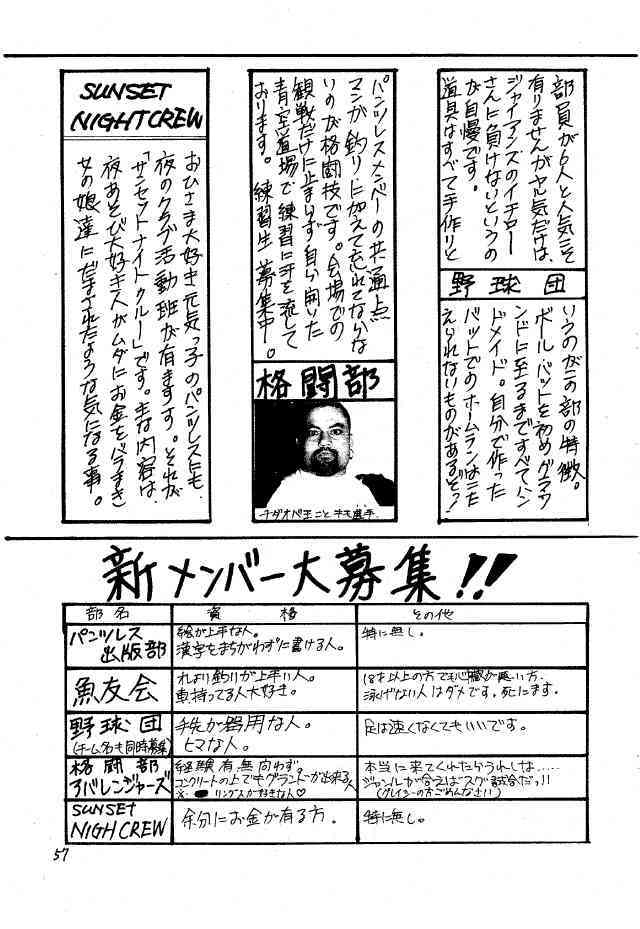 部員が6人と人気こそ
有りませんがヤル気だけは、
ジャイアンズのイチロー
さんに負けないというの
が自慢です。
道具はすべて手作りと
野球団
いうのがこの部の特徴。
ボール・バットを初めグラウ
ンドに至るまですべてハン
ドメイド。自分で作った
バットでのホームランはこた
えられないものがあるぞっ!
パンツレスメンバーの共通点
マンが、釣りに加えて忘れてならな
いのが格闘技です。会場での
観戦だけに止まらず自ら開いた
青空道場で練習に汗を流して
おります。練習生募集中。
格闘部
チダオベ王こと千も選手.
SUNSET
NIGHTCREW
おひさま大好き元気っ子のパンツレスにも
夜のクラブ活動班が有ります。それが
「サンセットナイトクルー」です。主な内容は、
夜あそび大好き人がムダにお金をバラまき
女の娘達にだまされたような気になる事。
新メンバー大募集!!
部名 資格 その他
パンツレス出版部 絵が上手な人。漢字をまちがわずに書ける人。 特に無し。
魚友会 れより釣りが上手い人。車持ってる人大好き。 18才以上の方でも心臓が悪い方、泳げない人はダメです。死にます。
野球団(チーム名も同時募集) 手先が器用な人。ヒマな人。 足は速くなくてもいいです。
格闘部アバレンジャーズ 経験有無向わず。コンクリートの上でもグランドが出来る人 本当に来てくれたらうれしな……ジャンルが合えばスグ試合だっ!!(グレイシーの方ごめんなさい)
SUNSET NIGHCREW 余分にお金が有る方. 特に無し。
57